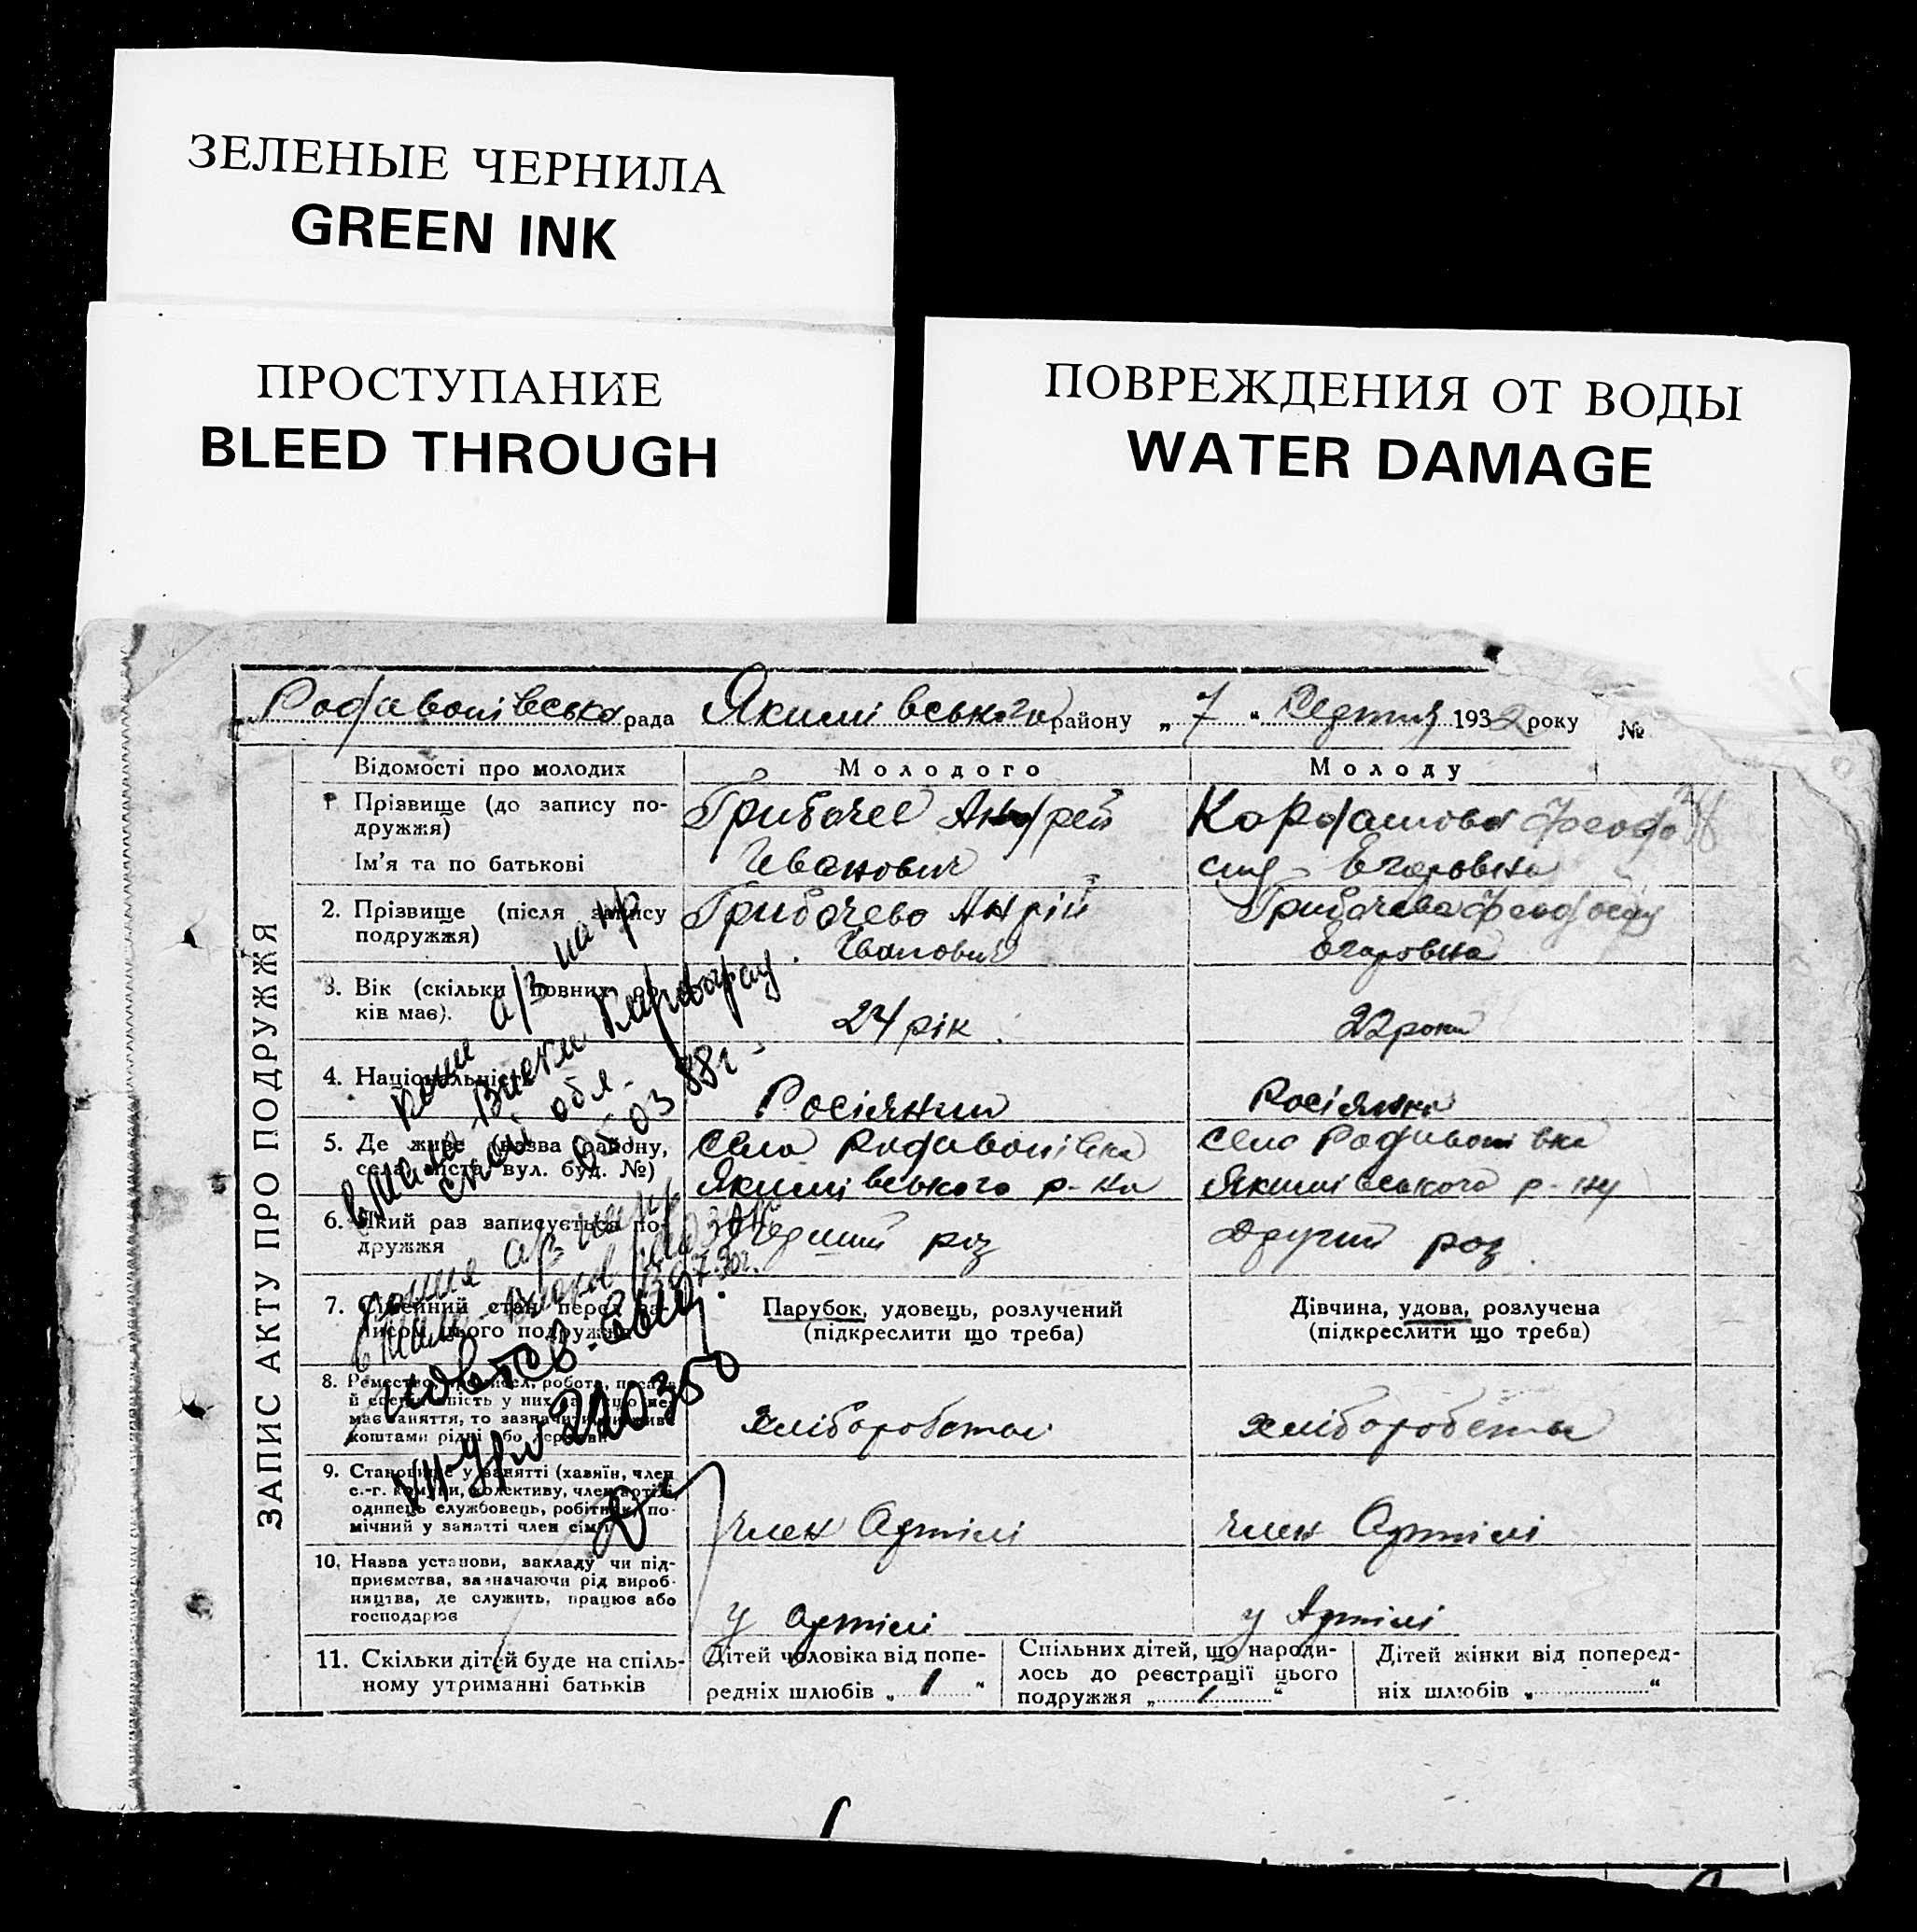 ЗЕЛЕНЫЕ ЧЕРНИЛА
GREEN INK
ПРОСТУПАНИЕ
BLEED THROUGH
ПОВРЕЖДЕНИЯ ОТ ВОДЫ
WATER DAMAGE
Родивонівсько рада Якимівського району „ 7 “ 1932 року №
ЗАПИС АКТУ ПРО ПОДРУЖЖЯ
Відомості про молодих Молодого Молоду
1 Прізвище (до запису по-
дружжя)
Ім'я та по батькові
Грибачев Андрей
Иванович
Кордашова Феодо
сия Егаровна
2. Прізвище (після запису
подружжя)
Грибачево Анрій
Іванович
Грибачева Феодосия
Егаровна
3. Вік (скільки повних ро-
ків має).
24 рік
22 роки
4. Національність
Росіянин
Росіянка
5. Де живе (назва району,
села, міста, вул. буд. №)
село Родивонівка
Якимівського р-на
село Родивонівка
Якимівського р-ну
6. Який раз записується по-
дружжя
перший раз
другий раз
7. Сімейний стан перед за-
писом цього подружжя
Парубок, удовець, розлучений
(підкреслити що треба)
Дівчина, удова, розлучена
(підкреслити що треба)
8. Ремество, промисел, робота, посада
й спеціяльність у них, а якщо не
має заняття, то зазначити чи живе
коштами рідні або держави
хліборобство
хліборобство
9. Становище у занятті (хазяїн, член
с.-г. комуни, колективу, член артілі,
одинець службовець, робітник, по-
мічний у занятті член сім'ї)
член Артілі
член Артілі
10. Назва установи, закладу чи під-
приємства, зазначаючи рід вироб-
ництва, де служить, працює або
господарює
у артілі
у Артілі
11. Скільки дітей буде на спіль-
ному утриманні батьків
Дітей чоловіка від попе-
редніх шлюбів „ / “
Спільних дітей, що народи-
лось до реєстрації цього
подружжя „ / “
Дітей жінки від поперед-
ніх шлюбів „ “
а/з на
Виски Кировоград
ской обл.
05 03 88г.
повт. св.
VII-УР № 210350